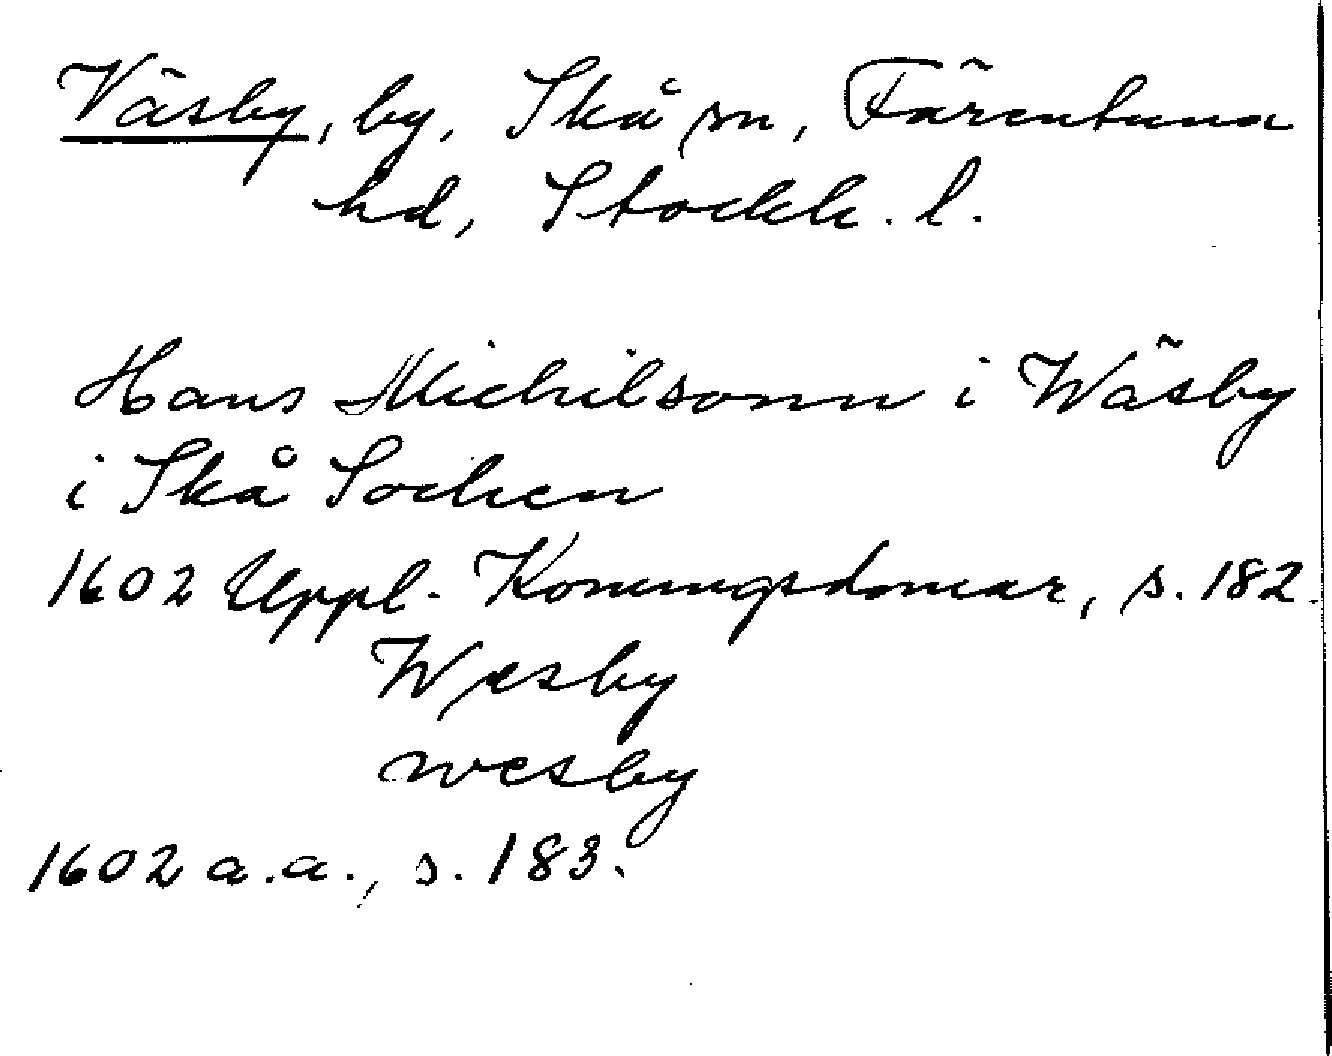 Väsby, by, Skå sn, Färentuna
hd, Stockh. l.
Hans Michilsonn i Wäsby
i Skå Sochen
1602 Uppl. Konungsdomar, s. 182.
Wesby
wesby
1602 a.a., s. 183.